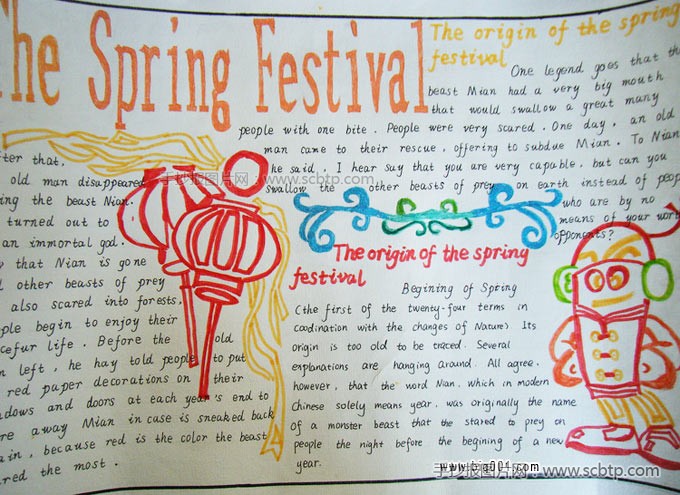 The Spring Festival
The origin of the spring
festival
One legend goes that th
beast Mian had a very big mouth
that would swallow a great many
people with one bite. People were very scared. One day, an old
man came to their rescue, offering to subdue Mian. To Nian
he said, I hear say that you are very capable, but can you
swallow the other beasts of prey on earth instead of peop
who are by no
means of your wort
opponents?
fter that,
old man disappeared
ing the beast Nian.
turned out to
an immortal god.
y that Nian is gone
d other beasts of prey
also scared into forests,
ple begin to enjoy their
cefur life. Before the old
n left, he hay told people to put
red paper decorations on their
ndows and doors at each year's end to
re away Mian in case is sneaked back
ain, because red is the color the beast
ared the most.
The origin of the spring
festival
Begining of Spring
(the first of the twenty-four terms in
coodination with the changes of Nature) Its
origin is too old to be traced. Several
explanations are hanging around. All agree,
however, that the word Nian, which in modern
Chinese solely means year, was originally the name
of a monster beast that the stared to prey on
people the night before the begining of a new
year.
手抄报图片网：www.scbtp.com
www.big001.com
手抄报图片网：www.scbtp.com